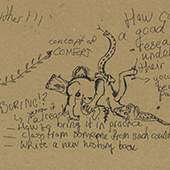 other!!!
concept of
COMFORT
How Go
a good
resear
under
their
you
be
pa
BORING!?
already
— How to bring it in practice
— class from someone from such count
— Write a new history book